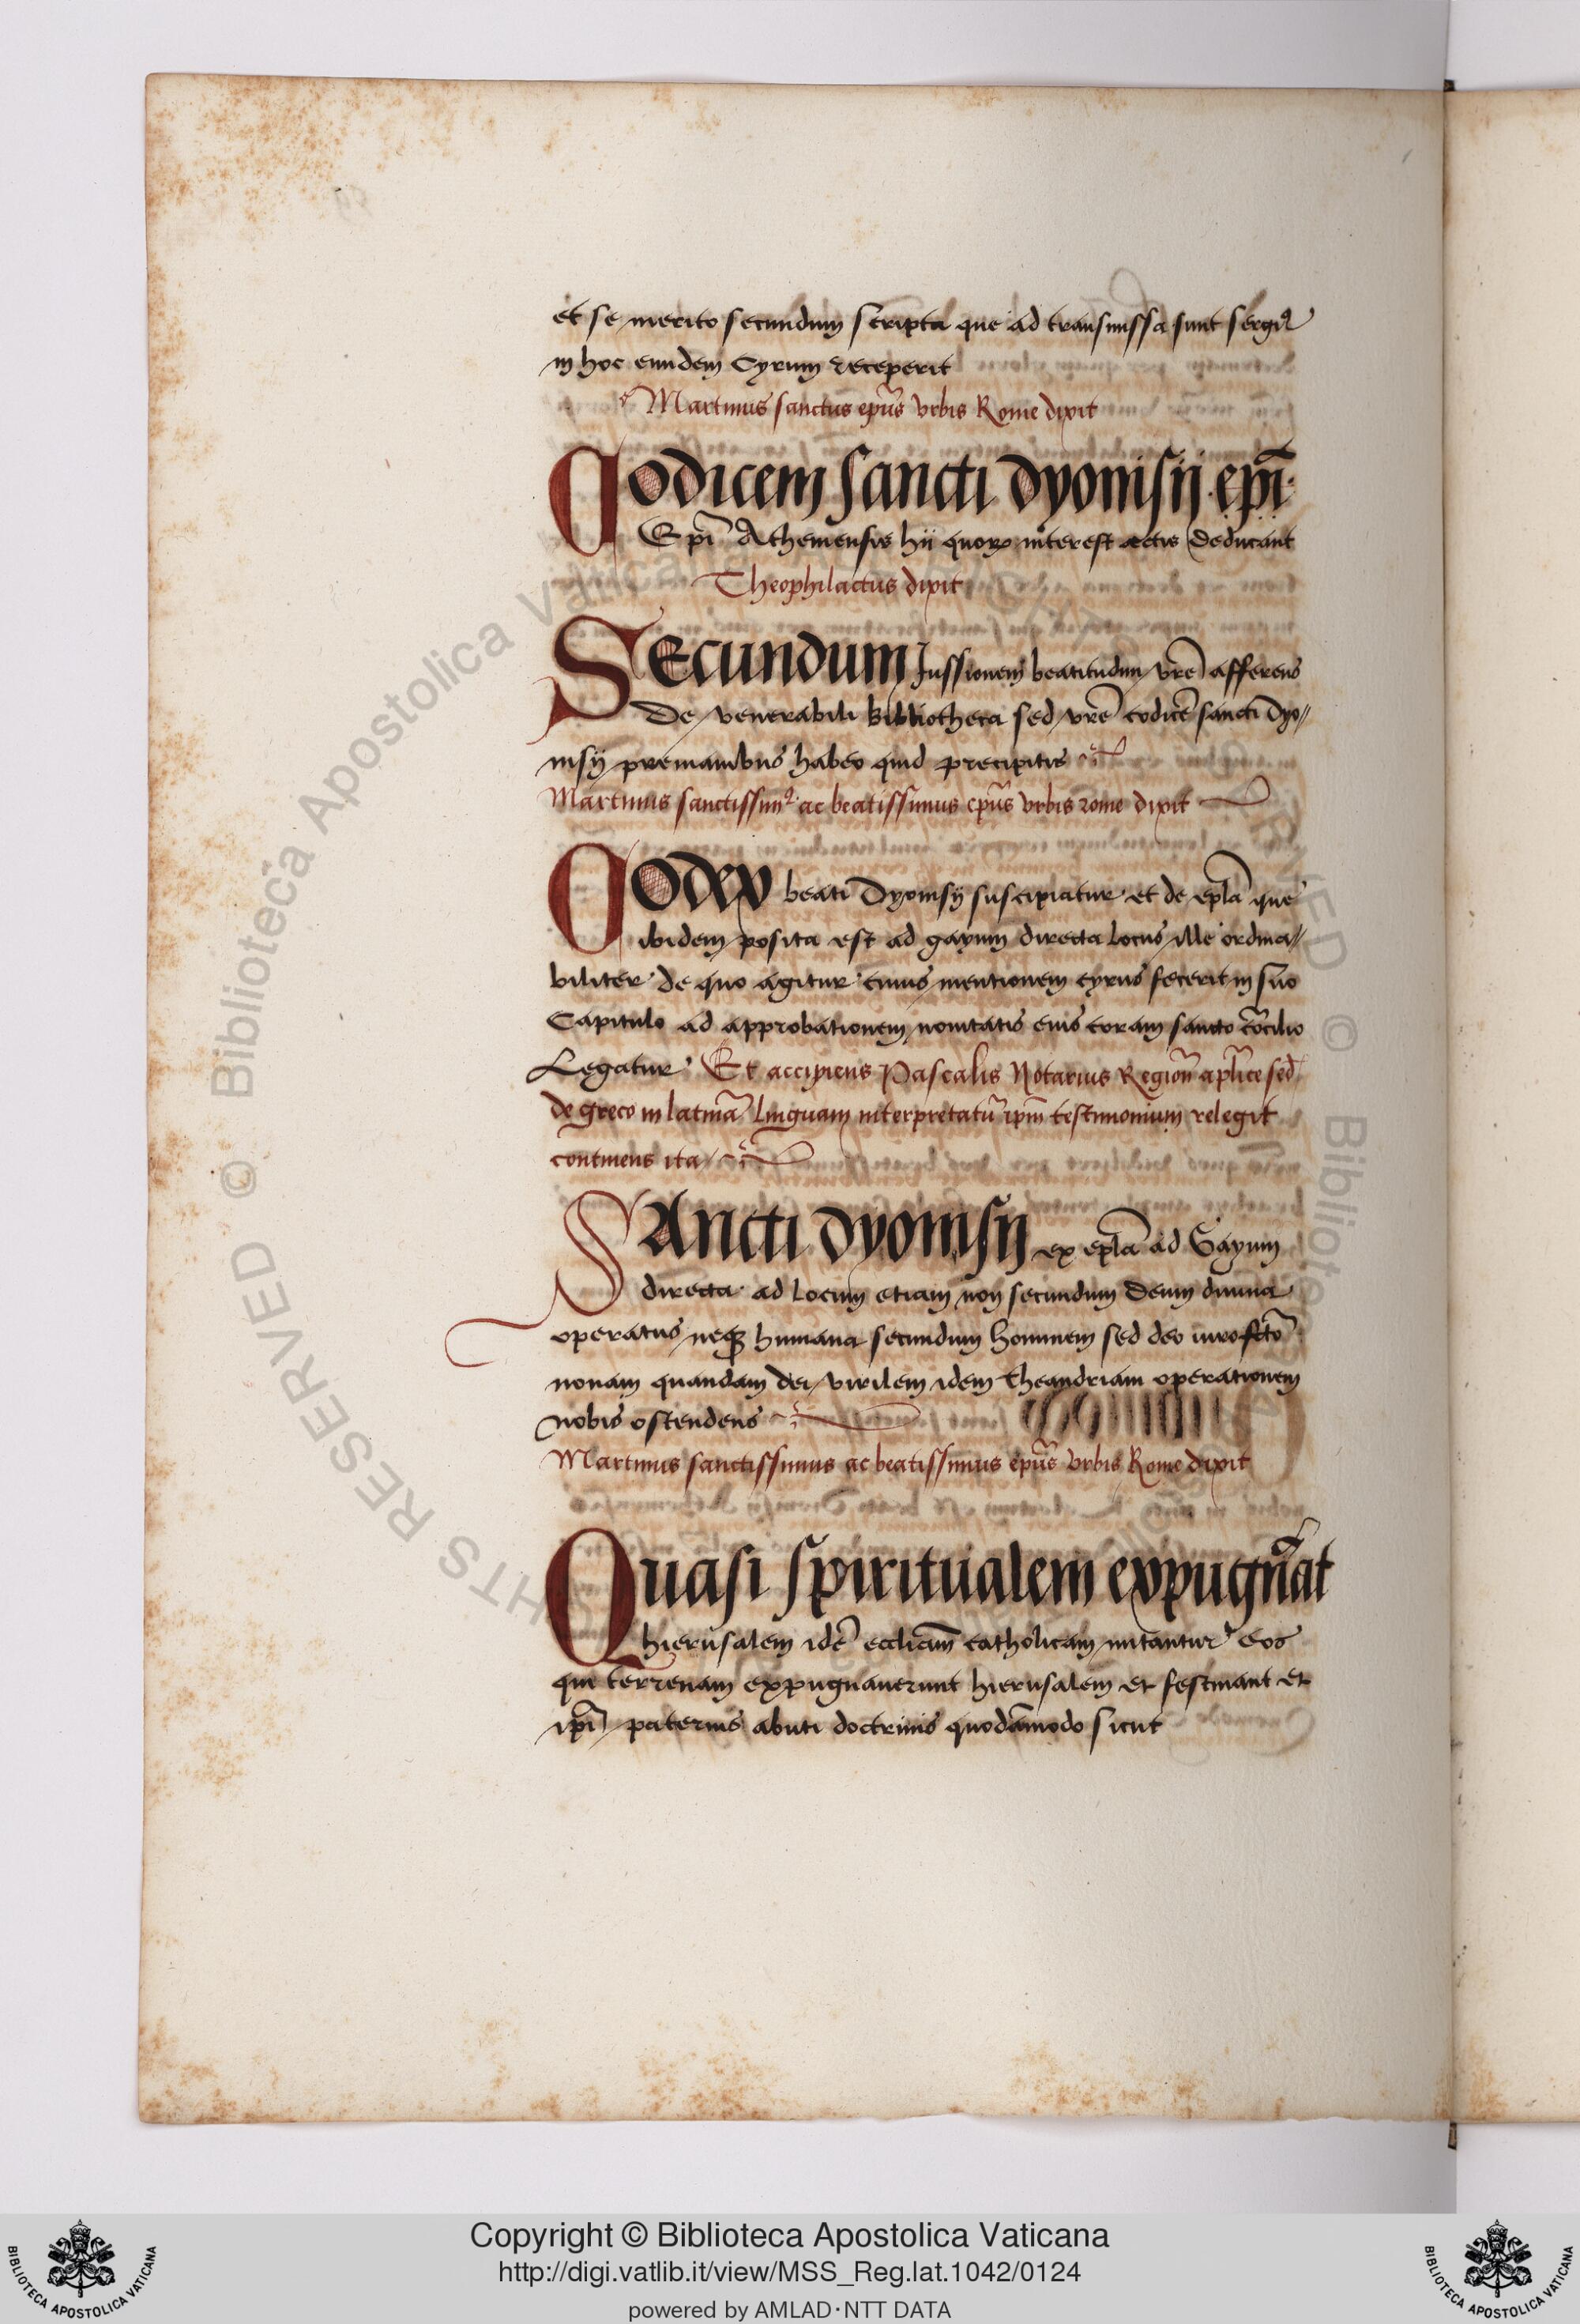 et se merito secundum scripta que ad transmissa sunt sergiꝰ
in hoc eundem Cyrum receperit
Martinus sanctus ep̃us Vrbis Rome dixit
Codicem sancti dyonisij ep̃i
Ep̃i Atheniensis hii quoꝝ interest actis deducant
Theophilactus dixit
Secundum Jussionem beatitudinis vr̃e afferens
De venerabili bibliotheca sed vr̃e codicẽ sancti Dyo//
nisij premanibus habeo quid precipitis
Martinus sanctissimꝰ ac beatissimus ep̃us Vrbis rome dixit
Codex beati Dyonisij suscipiatur et de ep̃la que
ibidem posita est ad gayum directa locus ille ordina//
biliter de quo agitur cuius mentionem cyrus fecerit in suo
Capitulo ad approbationem nouitatis eius coram sancto cõcilio
Legatur Et accipiens Pascalis Notarius Regioñ ap̃lice sed
de greco in latinã linguam interpretatũ ip̃m testimonium relegit
continens ita
Sancti dyonisij ex ep̃la ad Gayum
directa ad locum etiam non secundum Deum diuina
operatus neqꝫ humana secundum hominem sed deo uiro fc̃to
nouam quandam dei virilem idem theandriam operationem
nobis ostendens
Martinus sanctissimus ac beatissimus ep̃us Vrbis Rome dixit
Quasi spiritualem expugñat
hierusalem idẽ eccl̃iam catholicam nitantur eos
qui terrenam expugnauerunt hierusalem et festinant et
ip̃i paternis abuti doctrinis quodãmodo sicut
Copyright © Biblioteca Apostolica Vaticana
http://digi.vatlib.it/view/MSS_Reg.lat.1042/0124
powered by AMLAD·NTT DATA